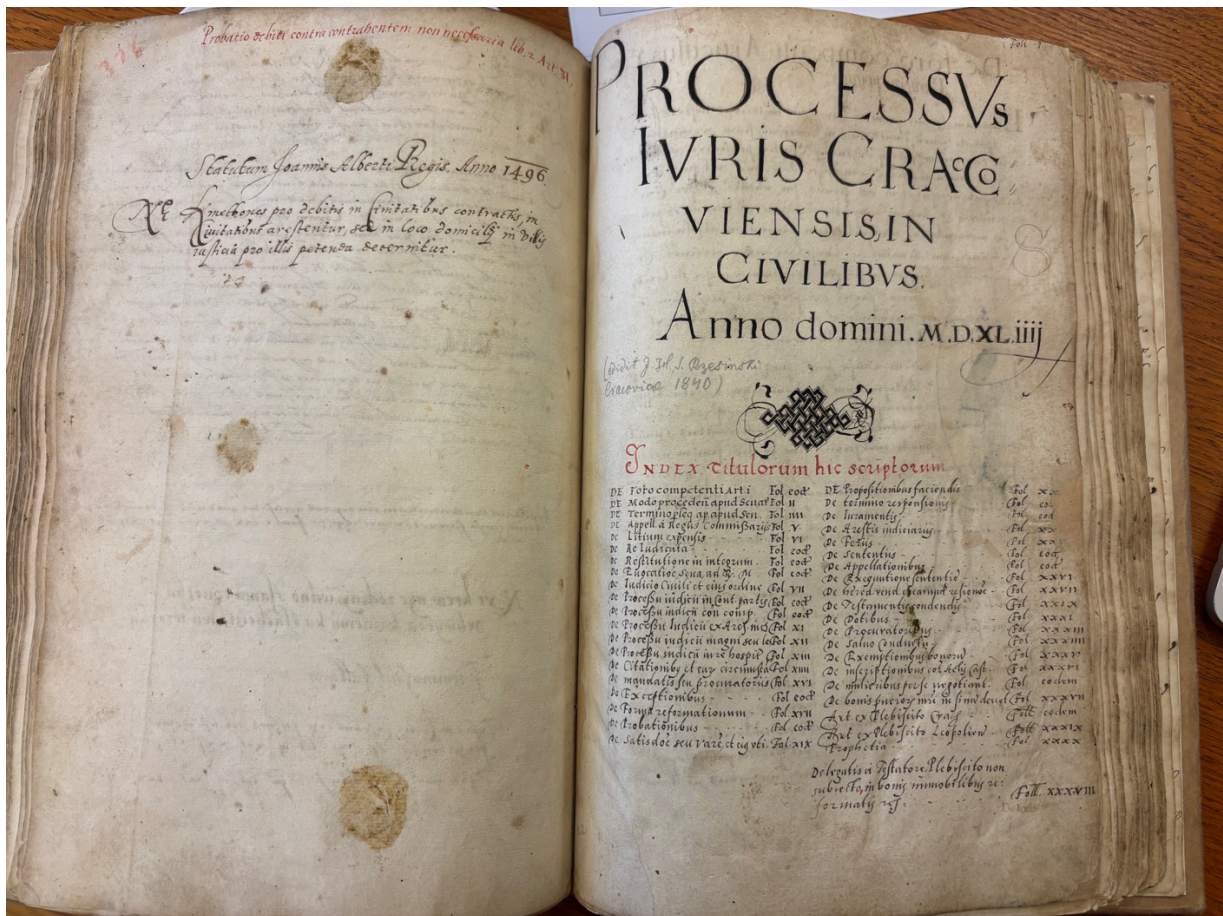 Probatio debiti contra contrahentem non necessaria lib. 2 Art. 31
Statutum Joannis Alberti Regis. Anno 1496.
Kmethones pro debitis in Civitatibus contractis, in
Civitatibus arestentur, sed in loco domicilij in Villis
iusticia pro illis petenda decernitur.
PROCESSVs
IVRIS CRACO
VIENSIS, IN
CIVILIBVS.
Anno domini. M.D.XL.iiij
(edidit J. Rzesinski
Cracoviae 1840)
INDEX titulorum hic scriptorum
DE Foro competenti Art i Fol eod
DE Modo procedeñ apud Senat Fol II
DE Termino apud Sen. Fol IIII
De Appell. a Regijs Commissarijs Fol V
De Litium expensis Fol VI
De Re Iudicata Fol eod
De Restitutione in integrum. Fol eod
De Evocatioe Fol eod
De Iudicio Civili et eius ordine Fol VII
De Processu iudicii in cont partis Fol eod
De Processu indicii con comp. Fol eod
De Processu Iudicii ex Fol XI
De Processu indicii magni seu Fol XII
De Processu indicii in re hospit Fol XIII
De Citationibo et eaz circumsta Fol XIIII
De mandatis seu procuratoriis Fol XVI
De Exceptionibus Fol eod
De Forma reformationum Fol XVII
De Probationibus Fol eod
De Satisdoe seu Fol XIX
DE Propositionibus faciendis Fol XX
De termino responsionis Fol
De Iuramentis Fol eod
De Arestis indiciarijs Fol
De Fol
De Sententiis Fol eod
De Appellationibus Fol eod
De Exequutione sententie Fol XXVI
De Fol XXVII
De Testamentis condendis Fol XXIX
De Dotibus Fol XXXI
De Procuratoribus Fol XXXIII
De Salvo Conductu Fol XXXIIII
De Exemptionibus bonorum Fol XXXV
De inscriptionibus Fol XXXVI
De mulieribus per se negotiant. Fol eodem
De bonis Fol XXXVII
Art. ex Plebiscito Crac Foll eodem
Art ex Plebiscito Leopolien Foll XXXIX
Prophetia Fol XXXX
De legatis a Testatore Plebiscito non
subiecto, in bonis immobilibus re
formatis Foll. XXXVIII